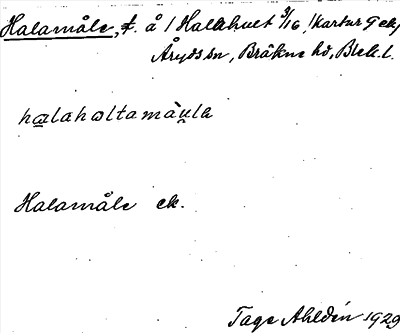 Halamåle, t. å 1 Halahult 3/16, (kartor G ek)
Åryds sn, Bräkne hd, Blek. l.
halahɷltamàu̯la
Halamåle ek.
Tage Ahldén 1929